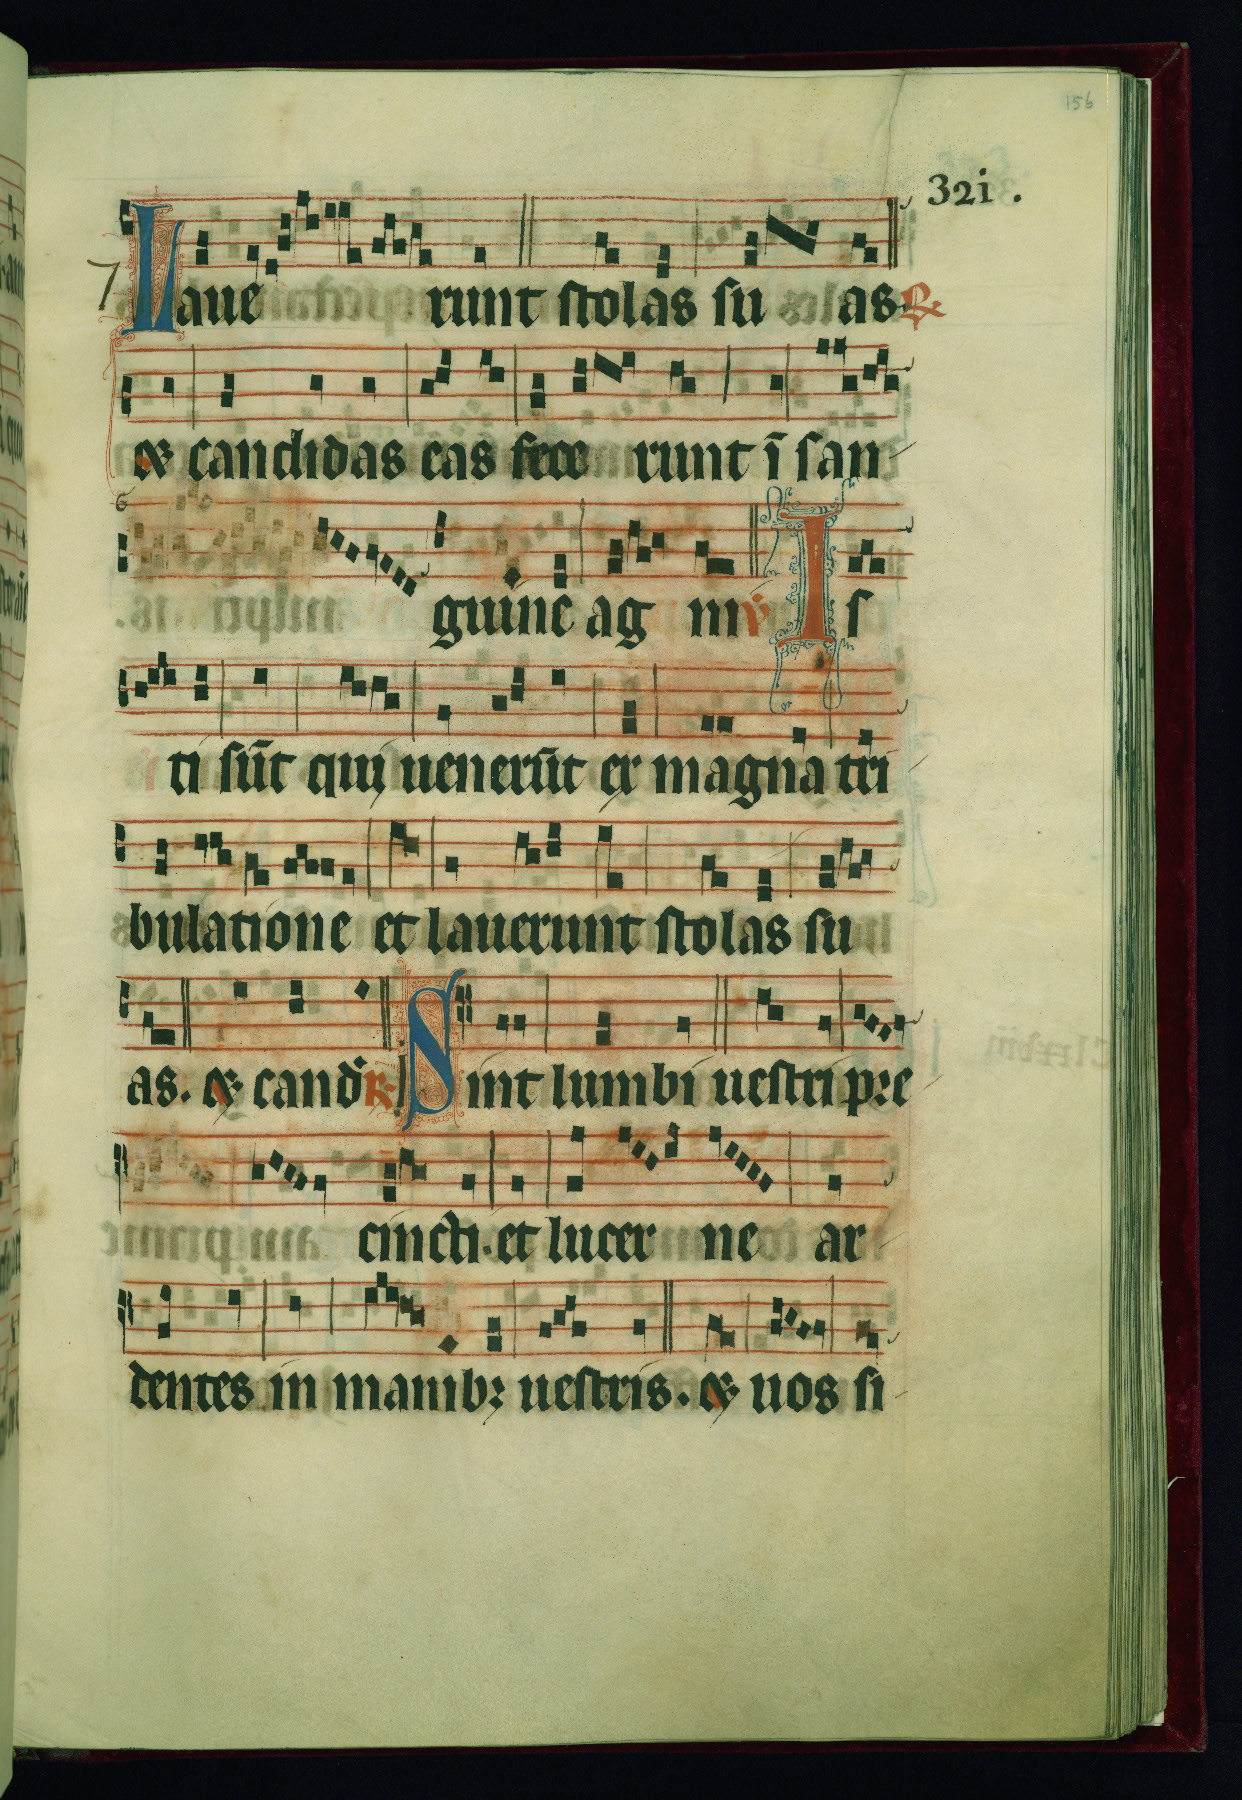 156
32i.
7 Lauerunt stolas suas ℟
& candidas eas fecerunt ī san
6
guine agni ℣ Is
ti sūt qui uenerūt ex magna tri
bulatione et lauerunt stolas su
as. & cand ℟ Sint lumbi uestri pre
cincti. et lucerne ar
dentes in manibꝫ uestris. & uos si